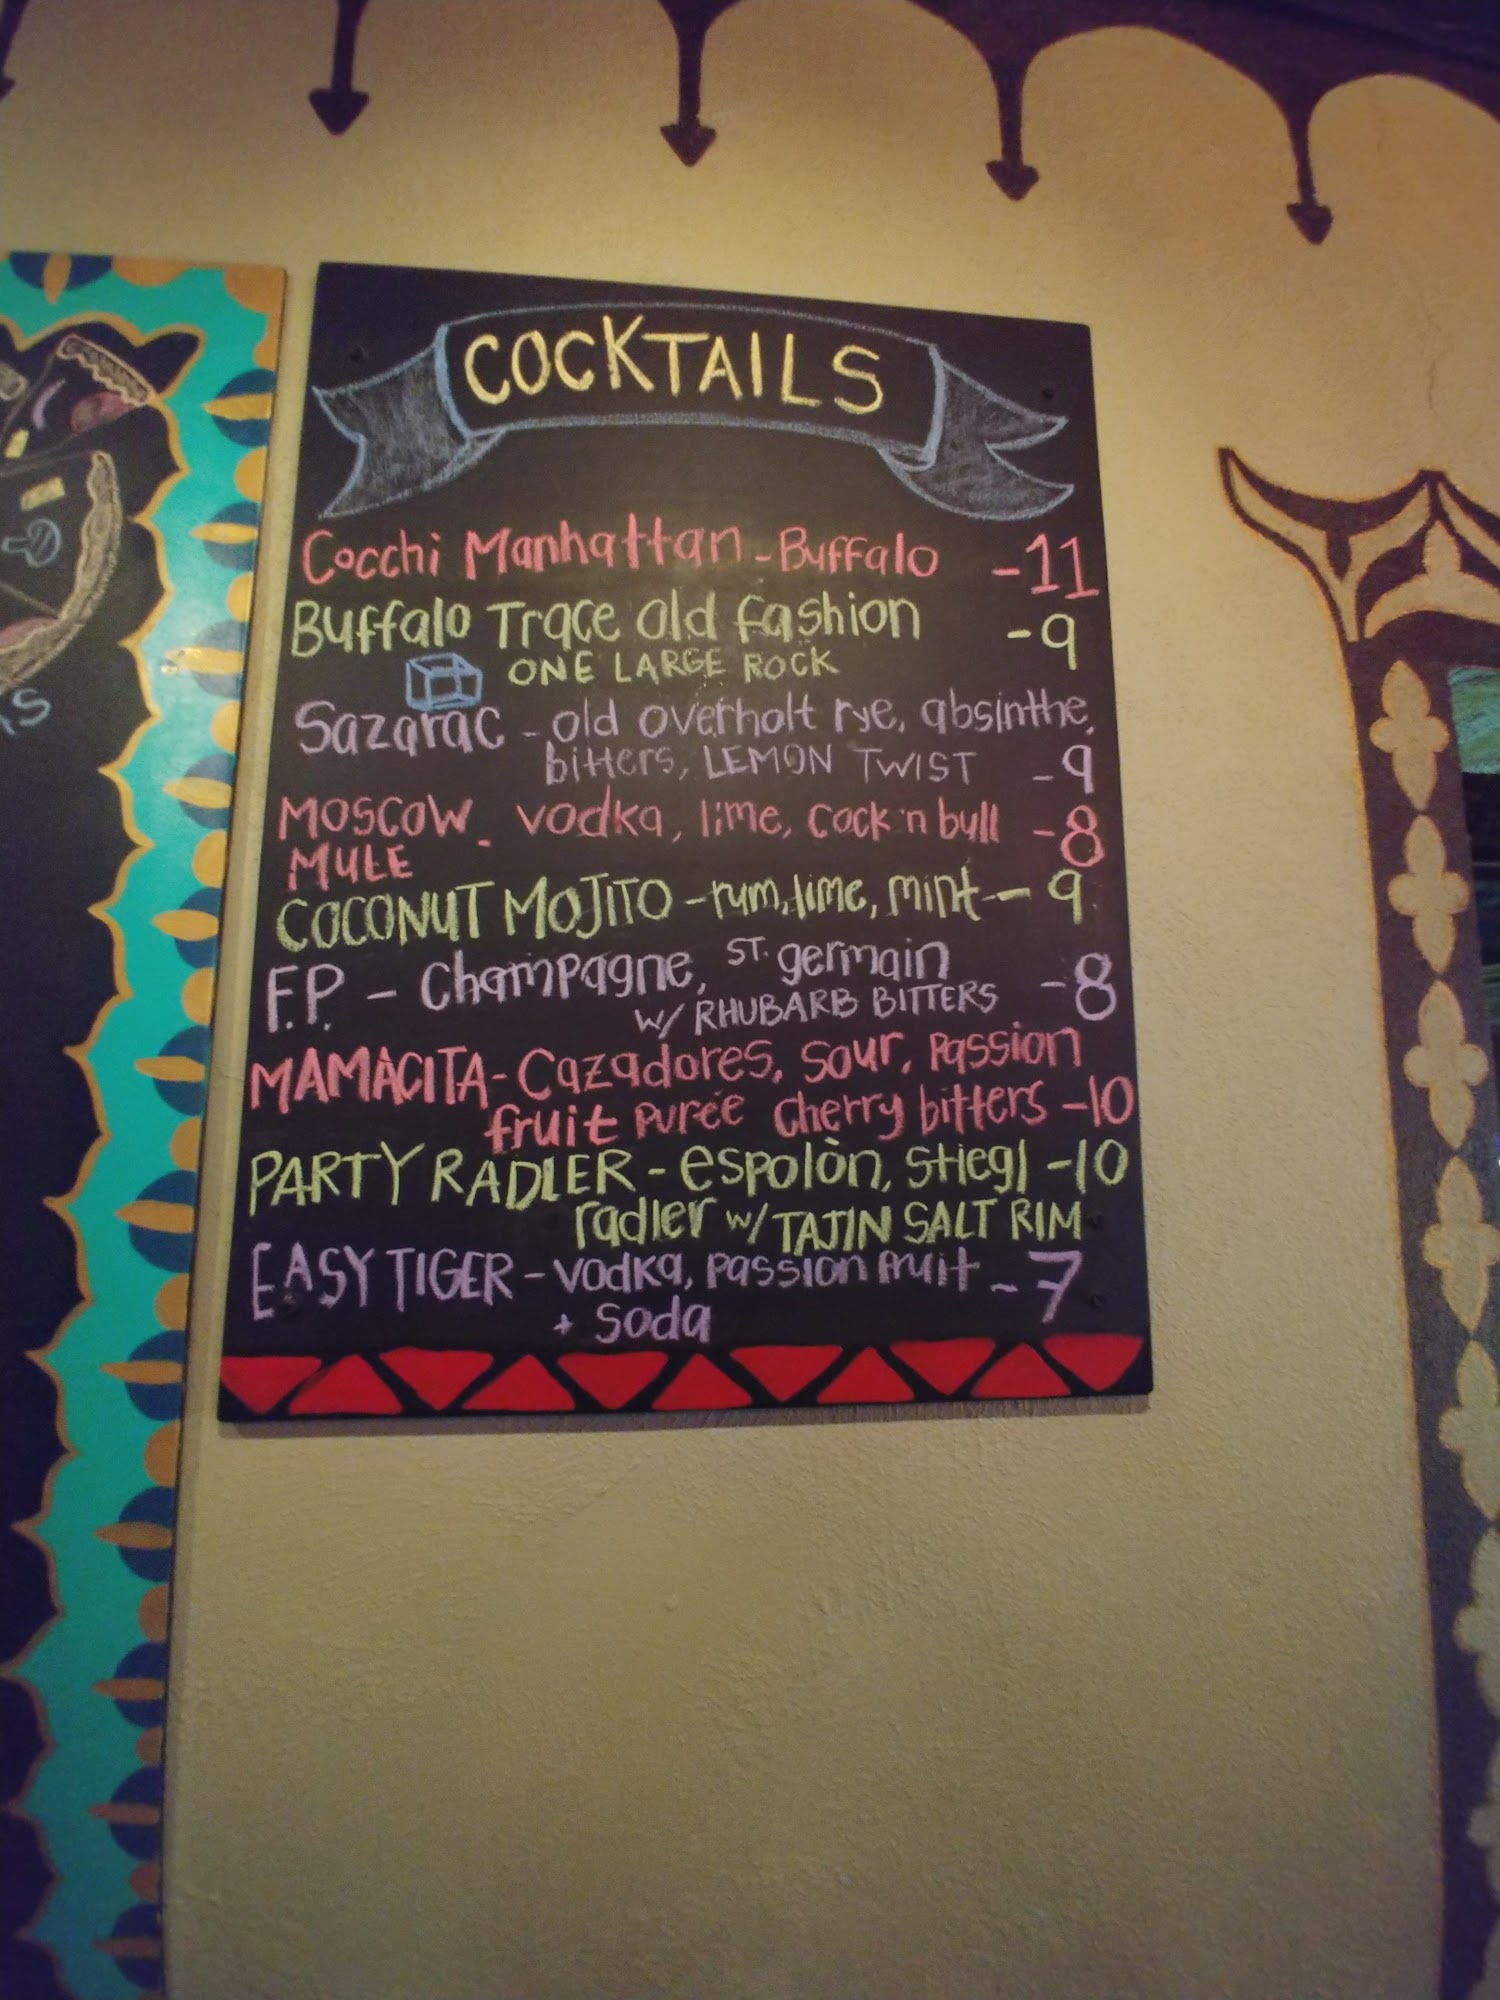 COCKTAILS
Cocchi Manhattan - Buffalo - 11
Buffalo Trace old fashion - 9
ONE LARGE ROCK
Sazarac - old overholt rye, absinthe,
bitters, LEMON TWIST - 9
MOSCOW - vodka, lime, cock 'n bull - 8
MULE
COCONUT MOJITO - rum, lime, mint - 9
F.P. - Champagne, ST. germain - 8
w/ RHUBARB BITTERS
MAMACITA - Cazadores, sour, passion
fruit purée cherry bitters - 10
PARTY RADLER - espolòn, stiegl - 10
radler w/ TAJIN SALT RIM
EASY TIGER - vodka, passion fruit - 7
+ soda